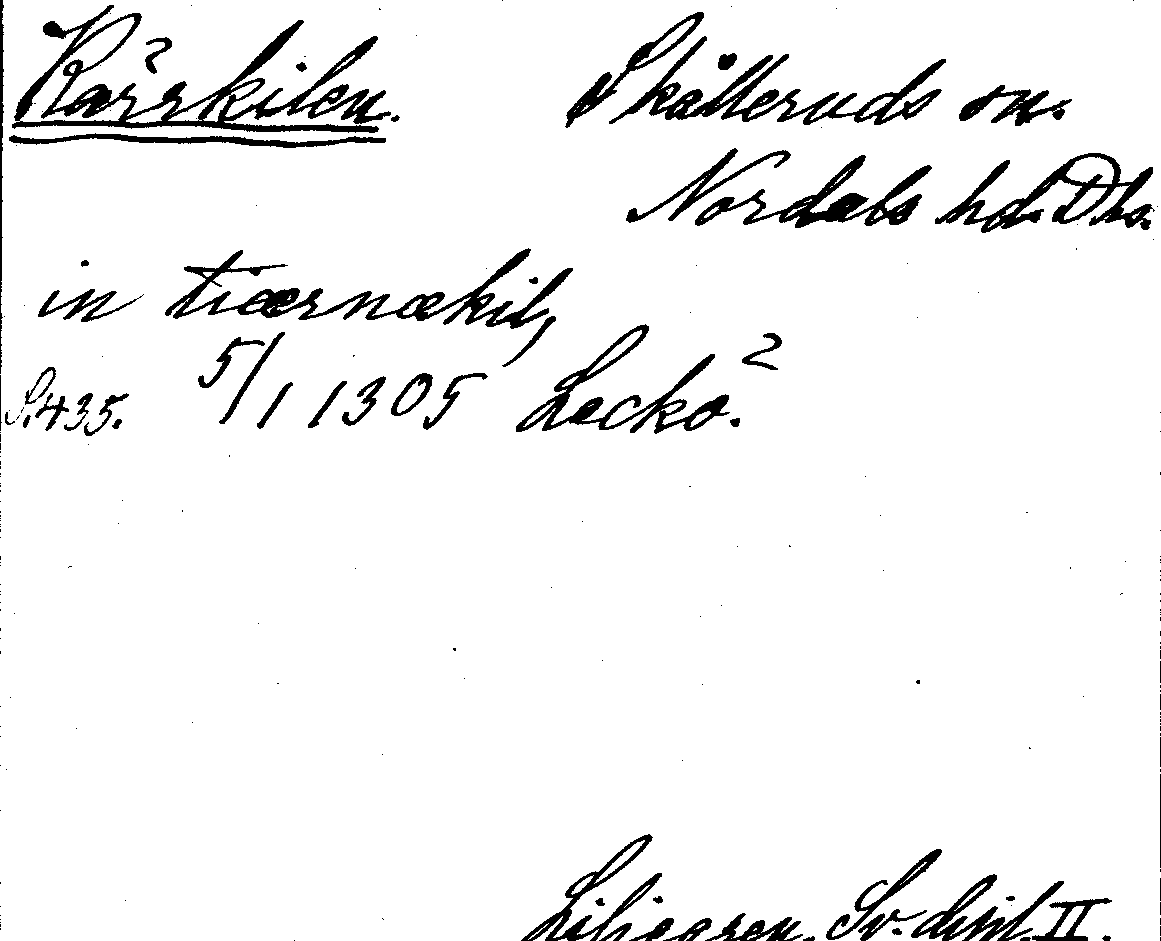 Kärrkilen. Skålleruds sn.
Nordals hd. Dls.
in tiærnækil,
S. 435. 5/1 1305 Lecko.2
Liljegren. Sv. dipl. II.